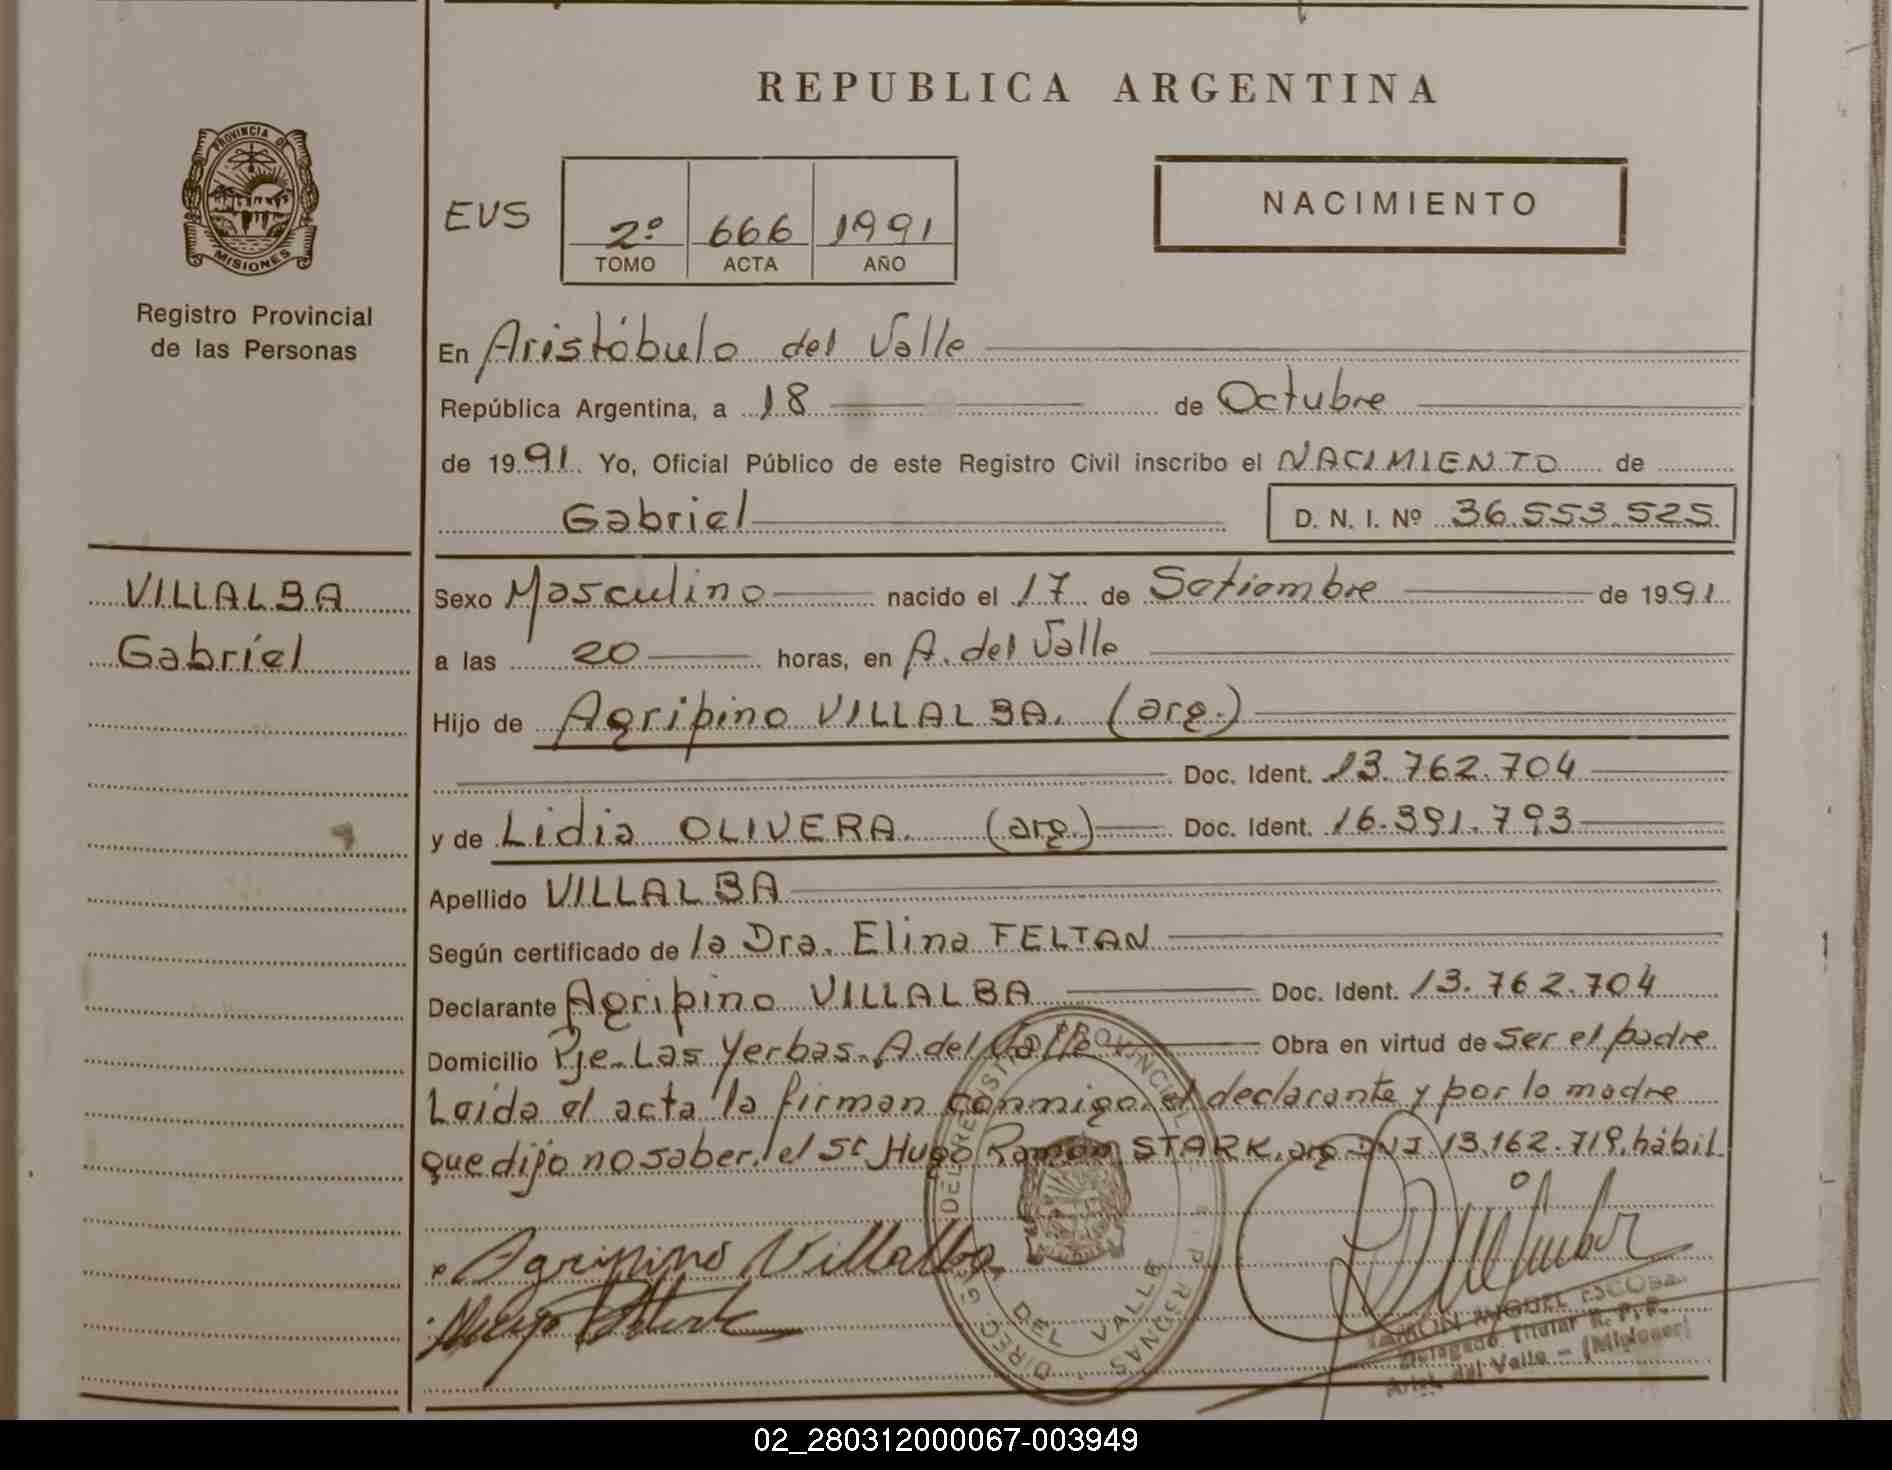 REPUBLICA ARGENTINA
PROVINCIA DE
MISIONES
Registro Provincial
de las Personas
EVS
2º 666 1991
TOMO ACTA AÑO
NACIMIENTO
En Aristóbulo del Valle
República Argentina, a 18 de Octubre
de 1991. Yo, Oficial Público de este Registro Civil inscribo el NACIMIENTO de
Gabriel D. N. I. Nº 36.553.525
VILLALBA
Gabriel
Sexo Masculino nacido el 17 de Setiembre de 1991
a las 20 horas, en A. del Valle
Hijo de Agripino VILLALBA. (arg.)
Doc. Ident. 13.762.704
y de Lidia OLIVERA. (arg.) Doc. Ident. 16.391.793
Apellido VILLALBA
Según certificado de la Dra. Elina FELTAN
Declarante Agripino VILLALBA Doc. Ident. 13.762.704
Domicilio Pje. Las Yerbas. A. del Valle Obra en virtud de Ser el padre
Leida el acta la firman conmigo, el declarante y por la madre
que dijo no saber, el Sr Hugo Ramón STARK, arg DNI 13.162.719, hábil
Agripino Villalba
DEL VALLE
RAMON MIGUEL ESCOBAR
Delegado Titular R. P. P.
Arist. del Valle - (Misiones)
02_280312000067-003949